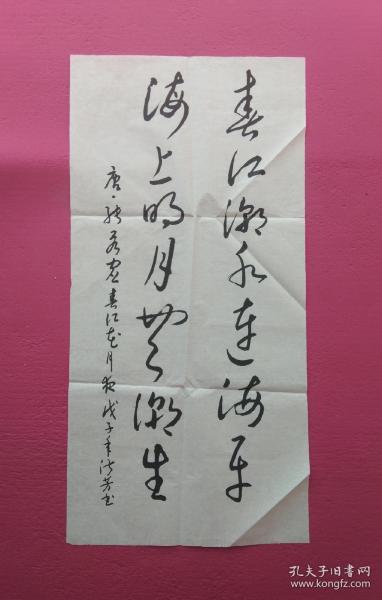 春江潮水连海平
海上明月共潮生
唐·张若虚春江花月夜 戊子年 芳书
孔夫子旧书网
www.kongfz.com